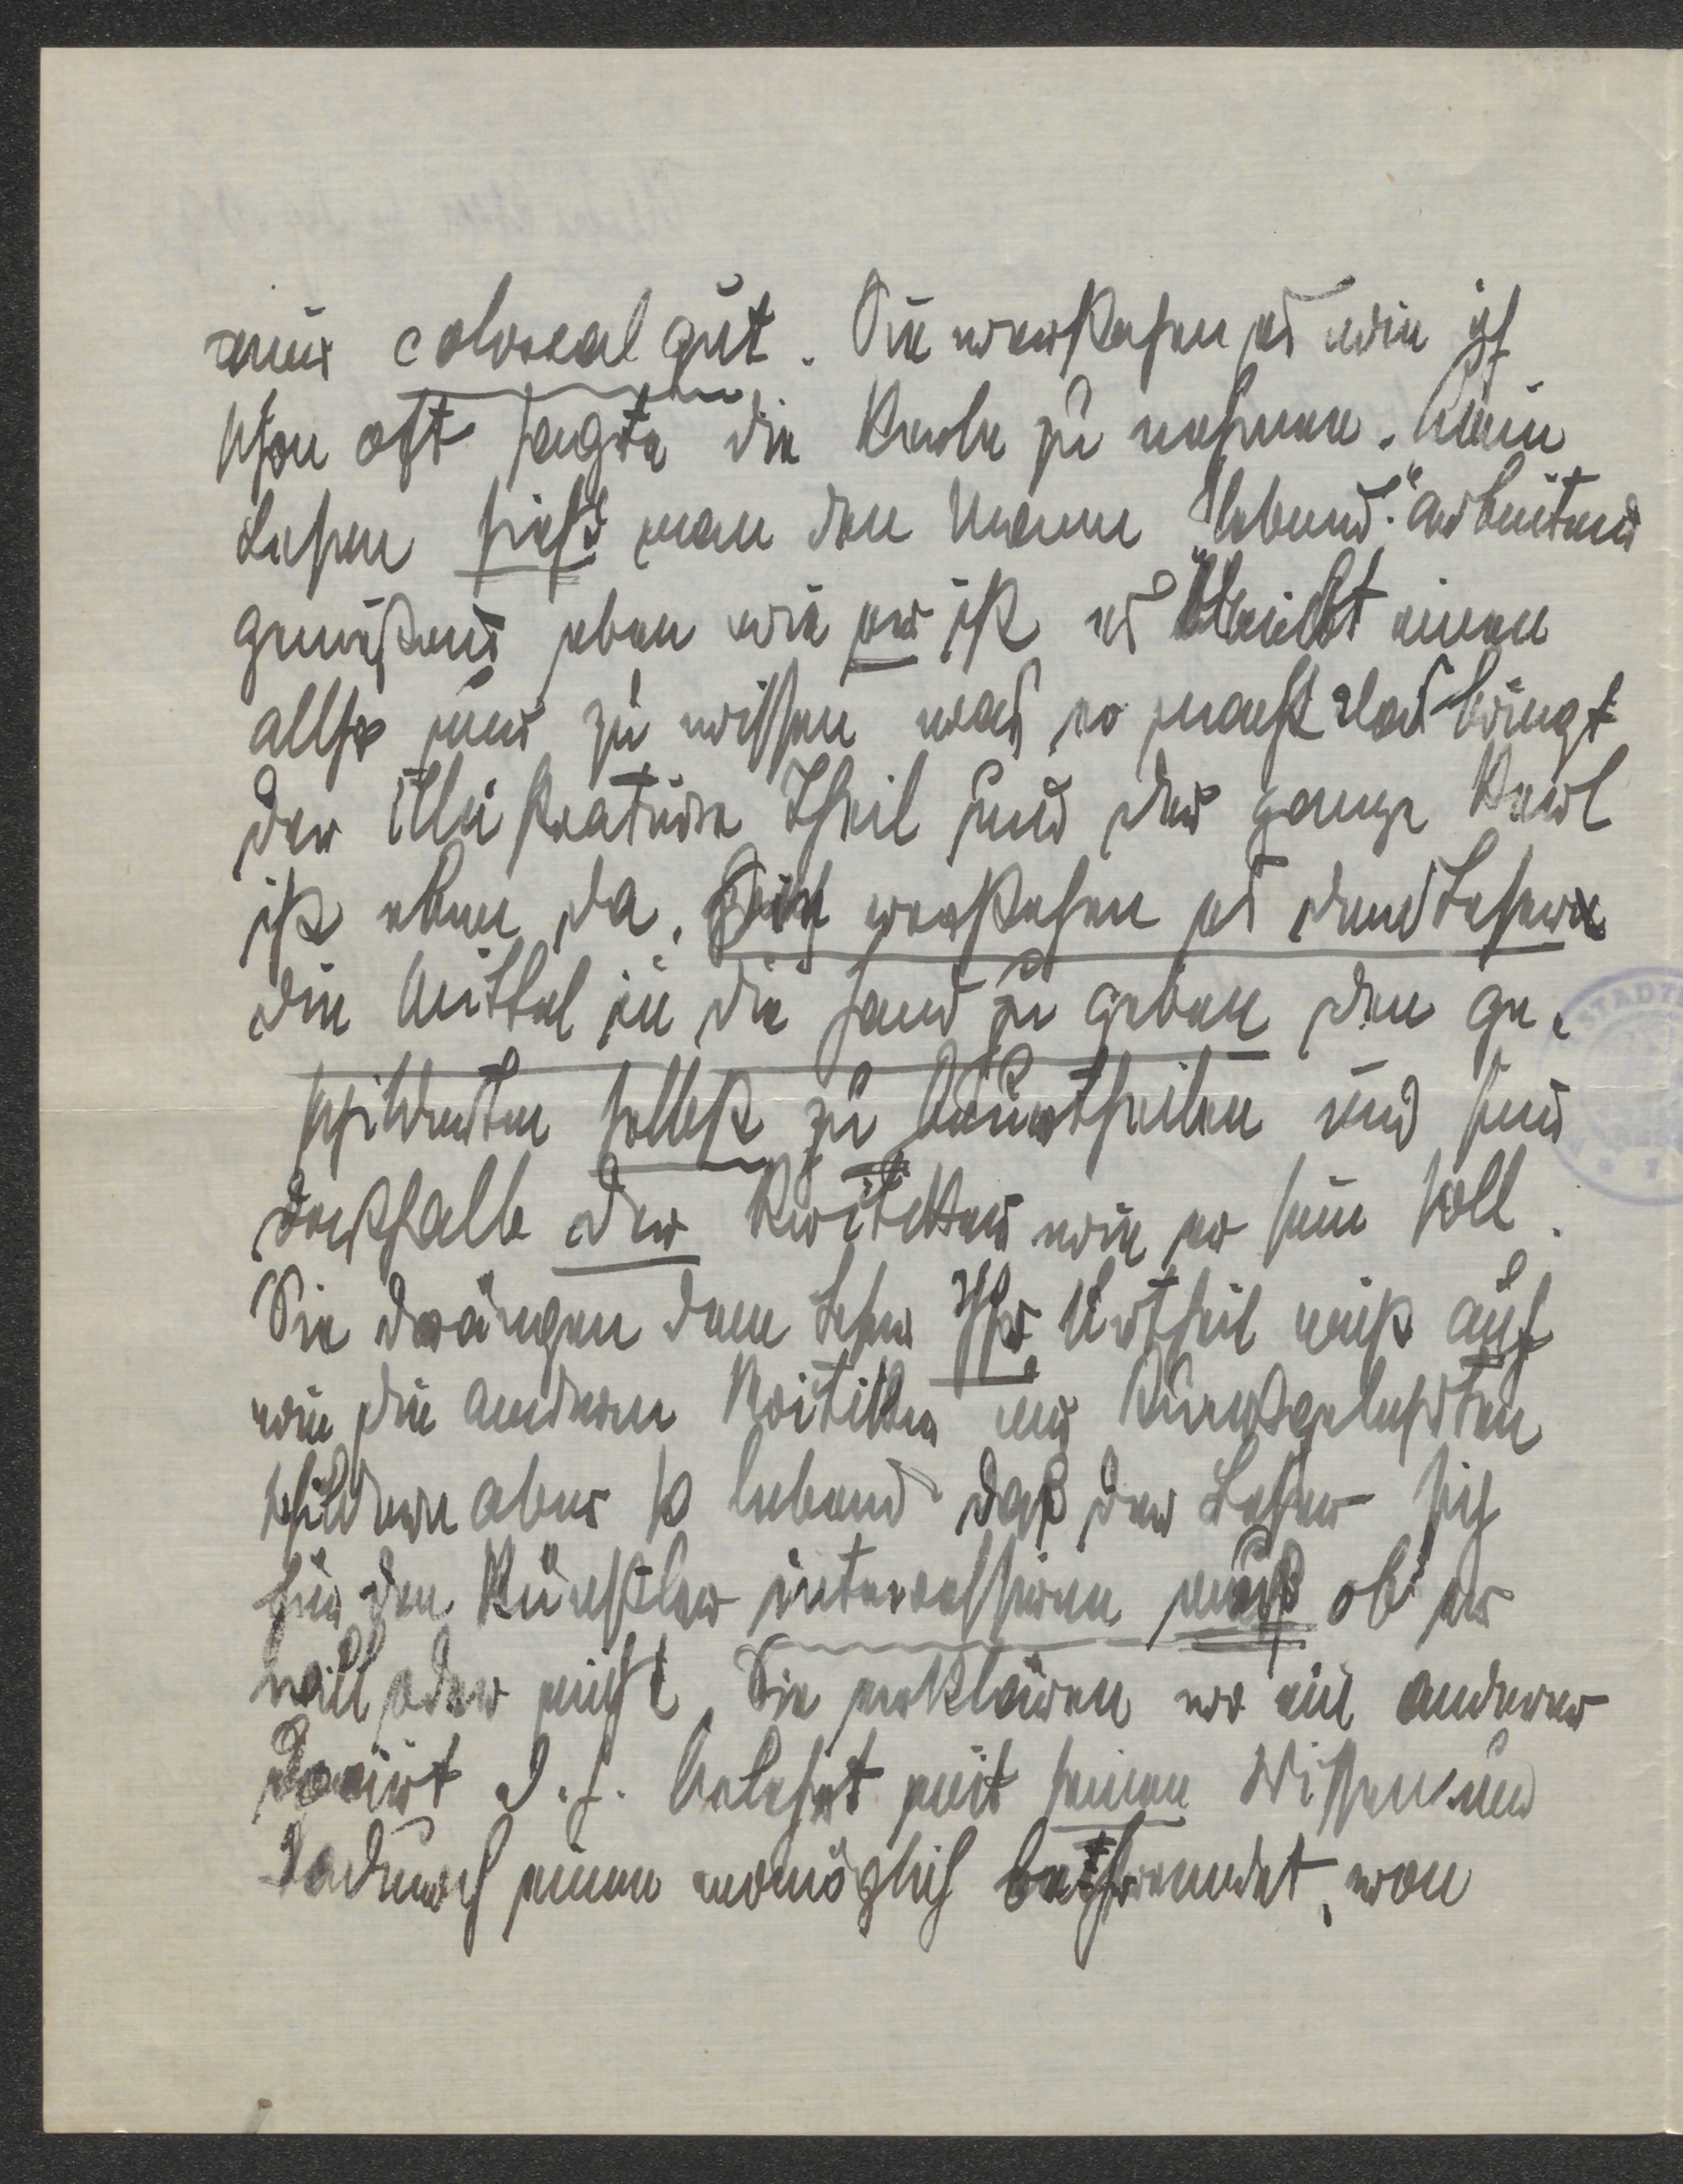 mir colossal gut. Sie verstehen es wie ich
schon oft sagte die Kerle zu nehmen. Beim
Lesen sieht man den Mann "lebend." arbeitend
genießend eben wie er ist es bleibt einem
allso nur zu wissen was er macht das bringt
der Illustrative Theil und der ganze Kerl
ist eben da. Sie verstehen es dem Leser
die Mittel in die Hand zu geben den ge-
schilderten selbst zu beurtheilen und sind
deßhalb der Kritiker wie er sein soll.
Sie drängen dem Leser Ihr Urtheil nicht auf
wie die anderen Kritiker und Kunstgelehrten
schildern aber so lebend daß der Leser sich
für den Künstler interessiren muß ob er
will oder nicht. Sie erklären wo ein anderer
docirt d.h. belehrt mit seinen Wissen und
dadurch einen womöglich befremdet, von